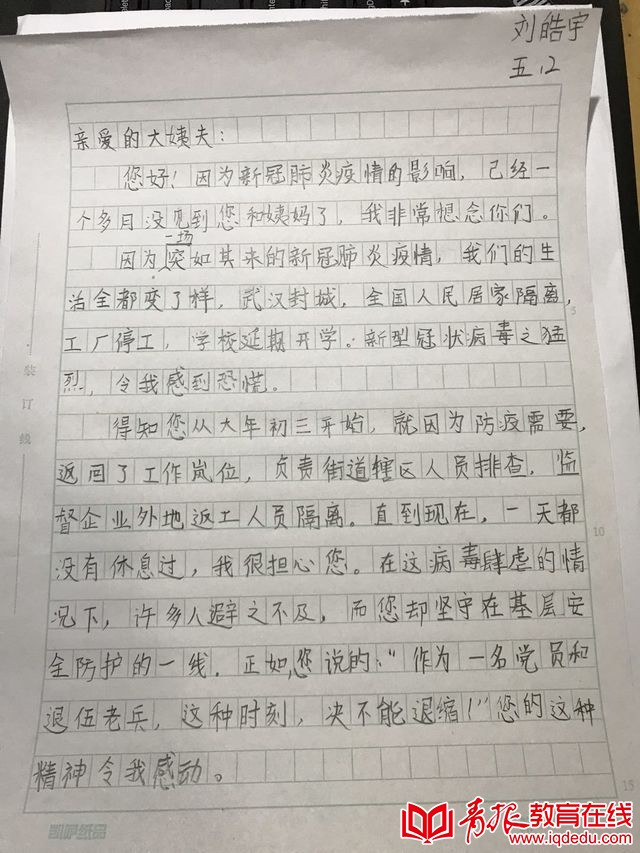 刘皓宇
五.2
亲爱的大姨夫：
您好！因为新冠肺炎疫情的影响，已经一
个多月没见到您和姨妈了，我非常想念你们。
一场
因为突如其来的新冠肺炎疫情，我们的生
活全都变了样，武汉封城，全国人民居家隔离，
工厂停工，学校延期开学。新型冠状病毒之猛
烈，令我感到恐慌。
得知您从大年初三开始，就因为防疫需要，
返回了工作岗位，负责街道辖区人员排查，监
督企业外地返工人员隔离。直到现在，一天都
没有休息过，我很担心您。在这病毒肆虐的情
况下，许多人避之不及，而您却坚守在基层安
全防护的一线。正如您说的：“作为一名党员和
退伍老兵，这种时刻，决不能退缩！”您的这种
精神令我感动。
装订线
5
10
15
凯萨纸品
青报教育在线
www.iqdedu.com